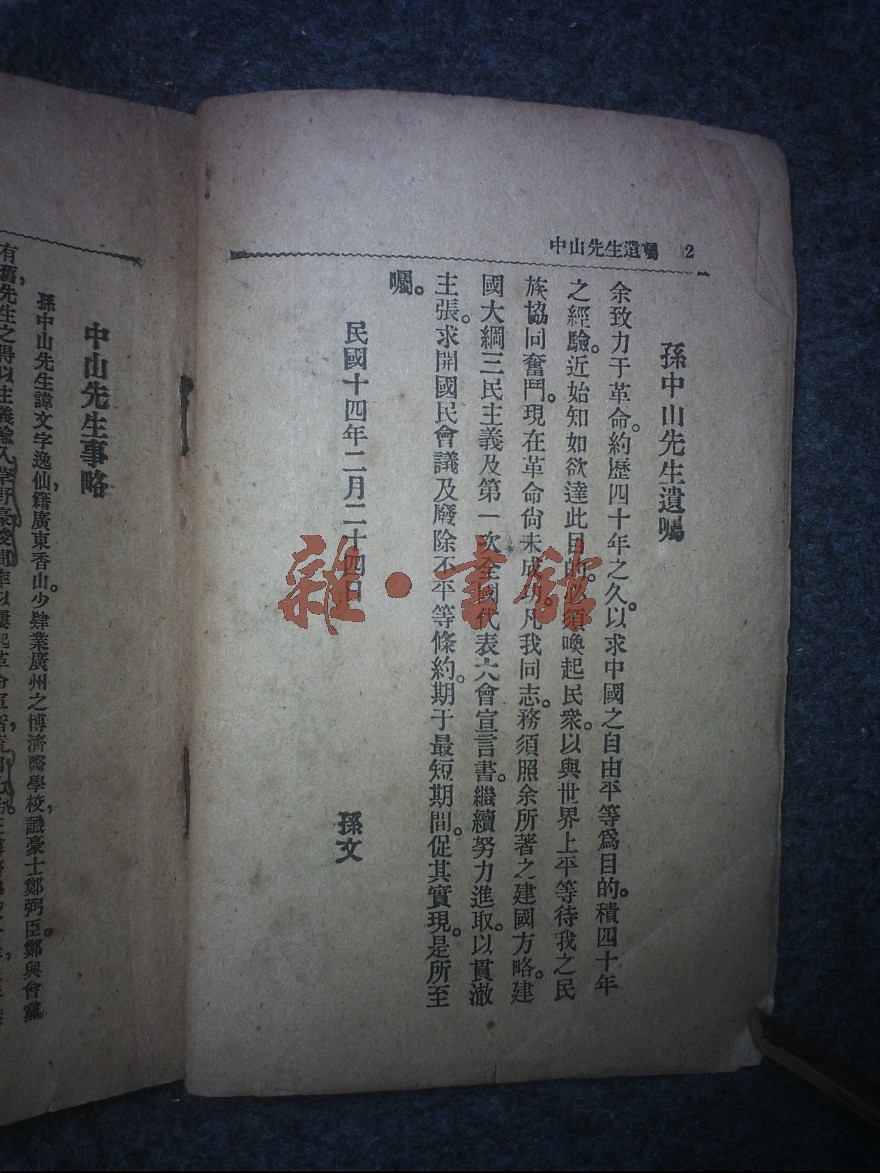 中山先生遺囑 2
孫中山先生遺囑
余致力于革命。約歷四十年之久。以求中國之自由平等爲目的。積四十年
之經驗。近始知如欲達此目的。必須喚起民衆。以與世界上平等待我之民
族協同奮鬥。現在革命尙未成功。凡我同志。務須照余所著之建國方略。建
國大綱三民主義及第一次全國代表大會宣言書。繼續努力進取。以貫澈
主張。求開國民會議及廢除不平等條約。期于最短期間。促其實現。是所至
囑。
民國十四年二月二十四日
孫文
中山先生事略
孫中山先生諱文字逸仙,籍廣東香山。少肄業廣州之博濟醫學校,識豪士鄭弼臣。鄭與會黨
有舊,先生之得以主義
雜·書館